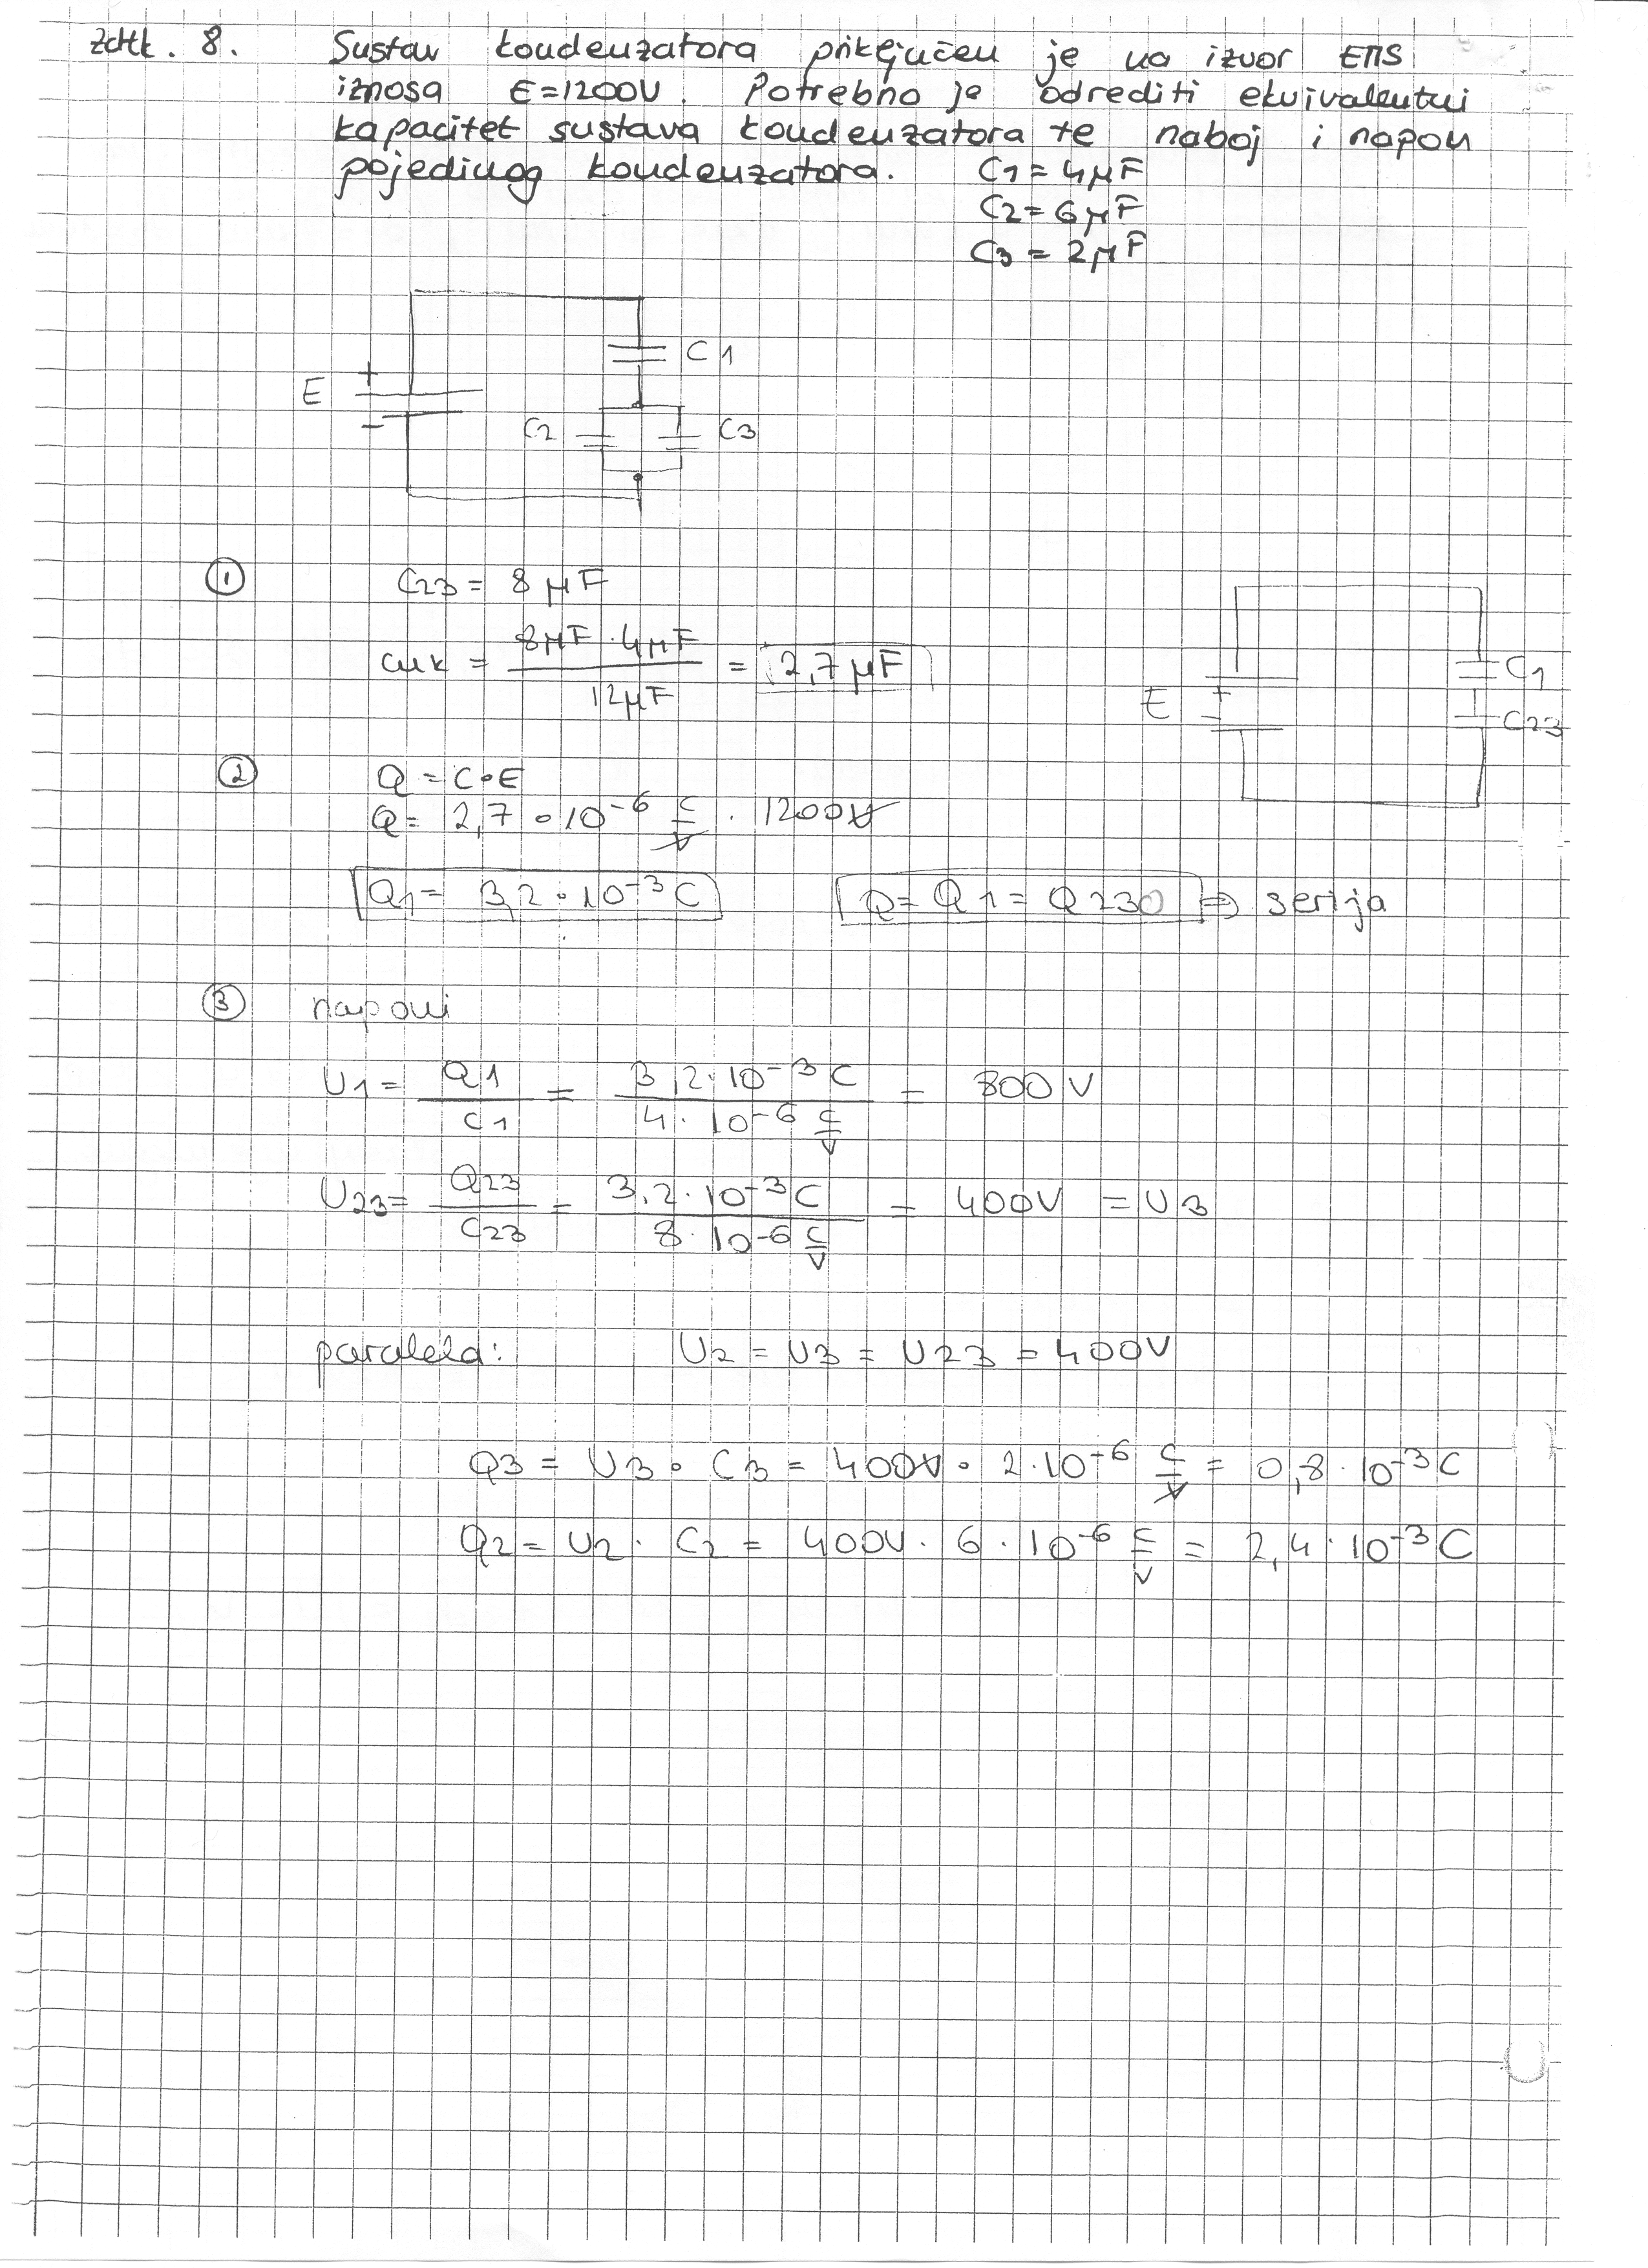 zdtk. 8. Sustav kondenzatora priključen je na izvor EMS
iznosa E=1200V. Potrebno je odrediti ekvivalentni
kapacitet sustava kondenzatora te naboj i napon
pojedinog kondenzatora. C1 = 4μF
C2 = 6μF
C3 = 2μF
C1
E + -
C2 C3
① C23 = 8 μF
cuk = 8μF · 4μF / 12μF = 2,7 μF
E + - C1
C23
② Q = C·E
Q = 2,7 · 10⁻⁶ C/V · 1200V
Q1 = 3,2 · 10⁻³ C Q = Q1 = Q230 ⇒ serija
③ naponi
U1 = Q1/C1 = 3,2·10⁻³ C / 4·10⁻⁶ C/V = 800 V
U23 = Q23/C23 = 3,2·10⁻³ C / 8·10⁻⁶ C/V = 400V = U3
paralela: U2 = U3 = U23 = 400V
Q3 = U3 · C3 = 400V · 2·10⁻⁶ C/V = 0,8·10⁻³ C
Q2 = U2 · C2 = 400V · 6·10⁻⁶ C/V = 2,4·10⁻³ C